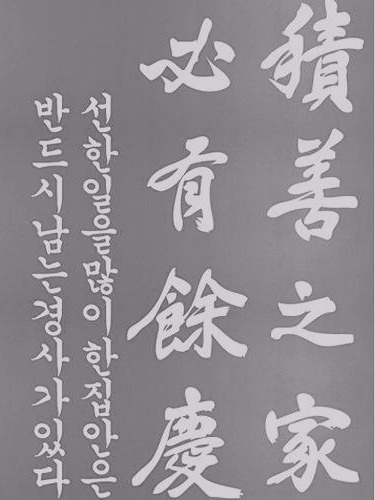 積善之家
必有餘慶
선한일을많이한집안은
반드시남는경사가있다